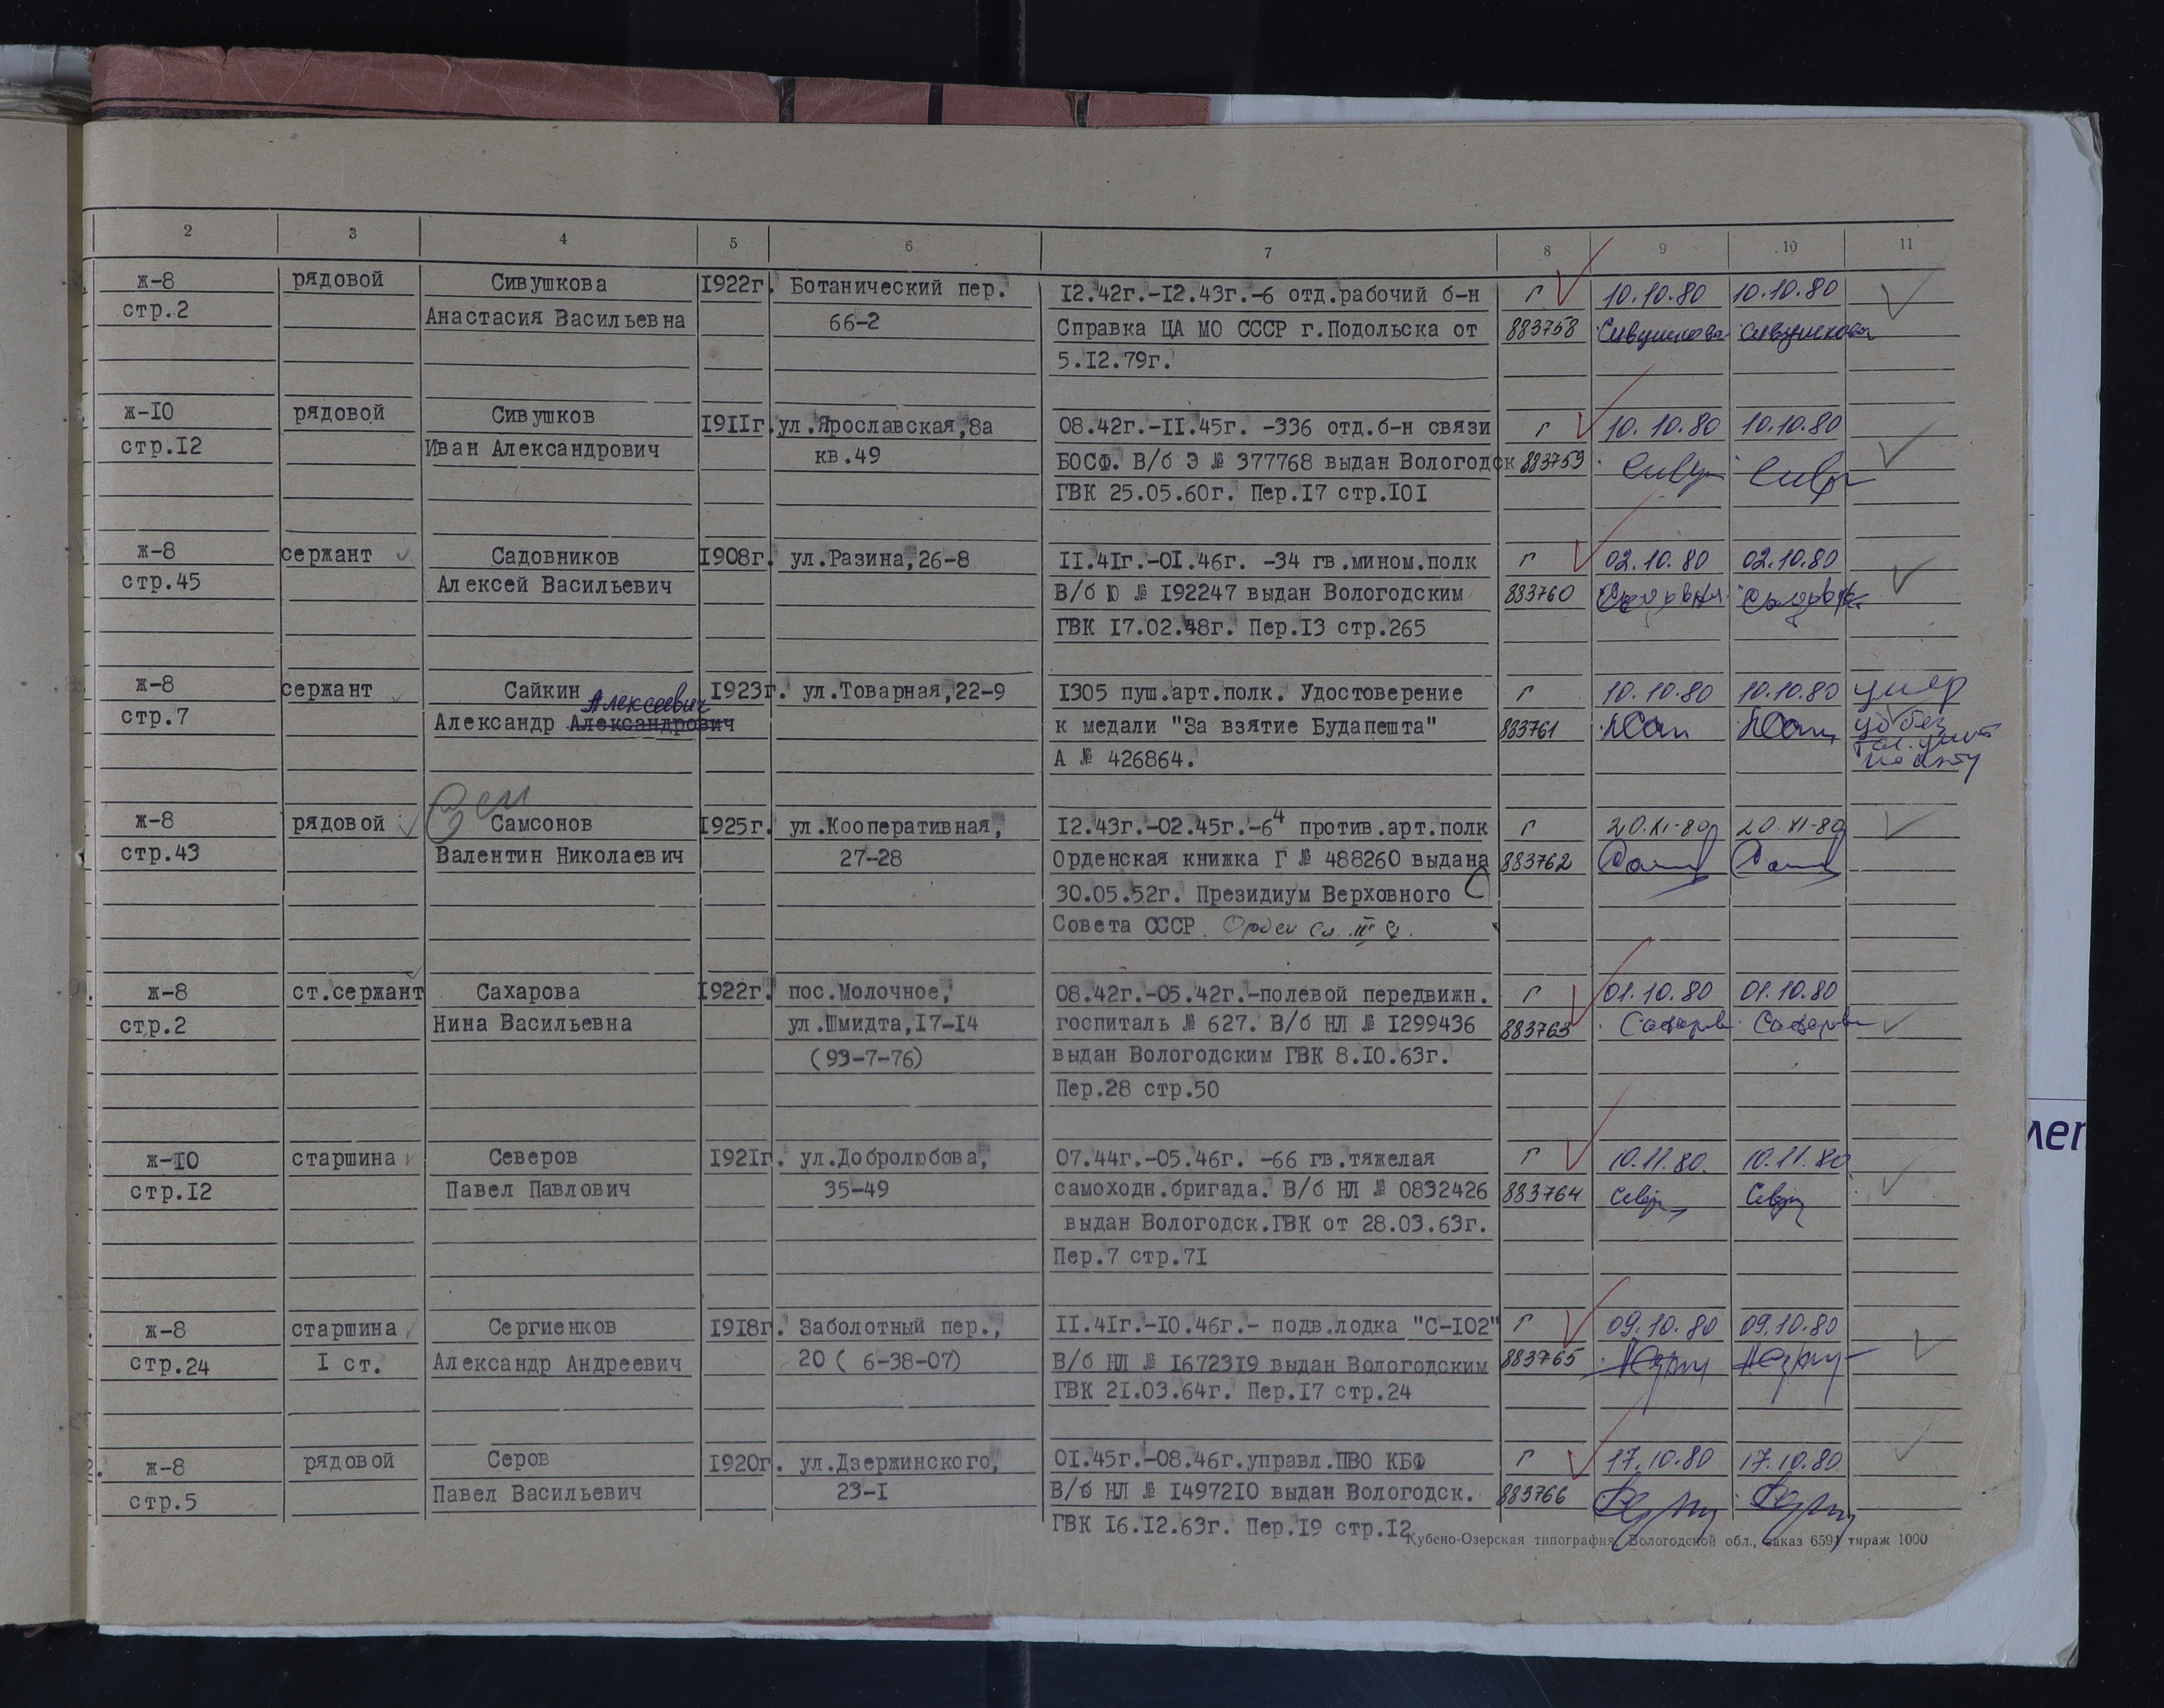 2 3 4 5 6 7 8 9 10 11
ж-8 рядовой Сивушкова 1922г. Ботанический пер. 12.42г.-12.43г.-6 отд.рабочий б-н г 10.10.80 10.10.80
стр.2 Анастасия Васильевна 66-2 Справка ЦА МО СССР г.Подольска от 883758 Сивушкова Сивушкова
5.12.79г.
ж-10 рядовой Сивушков 1911г. ул.Ярославская,8а 08.42г.-11.45г. -336 отд.б-н связи г 10.10.80 10.10.80
стр.12 Иван Александрович кв.49 БОСФ. В/б Э № 377768 выдан Вологодск 883759
ГВК 25.05.60г. Пер.17 стр.101
ж-8 сержант Садовников 1908г. ул.Разина,26-8 11.41г.-01.46г. -34 гв.мином.полк г 02.10.80 02.10.80
стр.45 Алексей Васильевич В/б Ю № 192247 выдан Вологодским 883760
ГВК 17.02.48г. Пер.13 стр.265
ж-8 сержант Сайкин 1923г. ул.Товарная,22-9 1305 пуш.арт.полк. Удостоверение г 10.10.80 10.10.80 умер
Алексеевич
стр.7 Александр Александрович к медали "За взятие Будапешта" 883761
А № 426864.
ж-8 рядовой Самсонов 1925г. ул.Кооперативная, 12.43г.-02.45г.-64 против.арт.полк г 20.XI-80 20.XI-80
стр.43 Валентин Николаевич 27-28 Орденская книжка Г № 488260 выдана 883762
30.05.52г. Президиум Верховного
Совета СССР. Орден Сл. III
ж-8 ст.сержант Сахарова 1922г. пос.Молочное, 08.42г.-05.42г.-полевой передвижн. г 01.10.80 01.10.80
стр.2 Нина Васильевна ул.Шмидта,17-14 госпиталь № 627. В/б НЛ № 1299436 883763
(93-7-76) выдан Вологодским ГВК 8.10.63г.
Пер.28 стр.50
ж-10 старшина Северов 1921г. ул.Добролюбова, 07.44г.-05.46г. -66 гв.тяжелая г 10.11.80. 10.11.80
стр.12 Павел Павлович 35-49 самоходн.бригада. В/б НЛ № 0832426 883764
выдан Вологодск.ГВК от 28.03.63г.
Пер.7 стр.71
ж-8 старшина Сергиенков 1918г. Заболотный пер., 11.41г.-10.46г.- подв.лодка "С-102" г 09.10.80 09.10.80
стр.24 1 ст. Александр Андреевич 20 ( 6-38-07) В/б НЛ № 1672319 выдан Вологодским 883765
ГВК 21.03.64г. Пер.17 стр.24
ж-8 рядовой Серов 1920г. ул.Дзержинского, 01.45г.-08.46г.управл.ПВО КБФ г 17.10.80 17.10.80
стр.5 Павел Васильевич 23-1 В/б НЛ № 1497210 выдан Вологодск. 883766
ГВК 16.12.63г. Пер.19 стр.12
Кубено-Озерская типография Вологодской обл., заказ 6591 тираж 1000